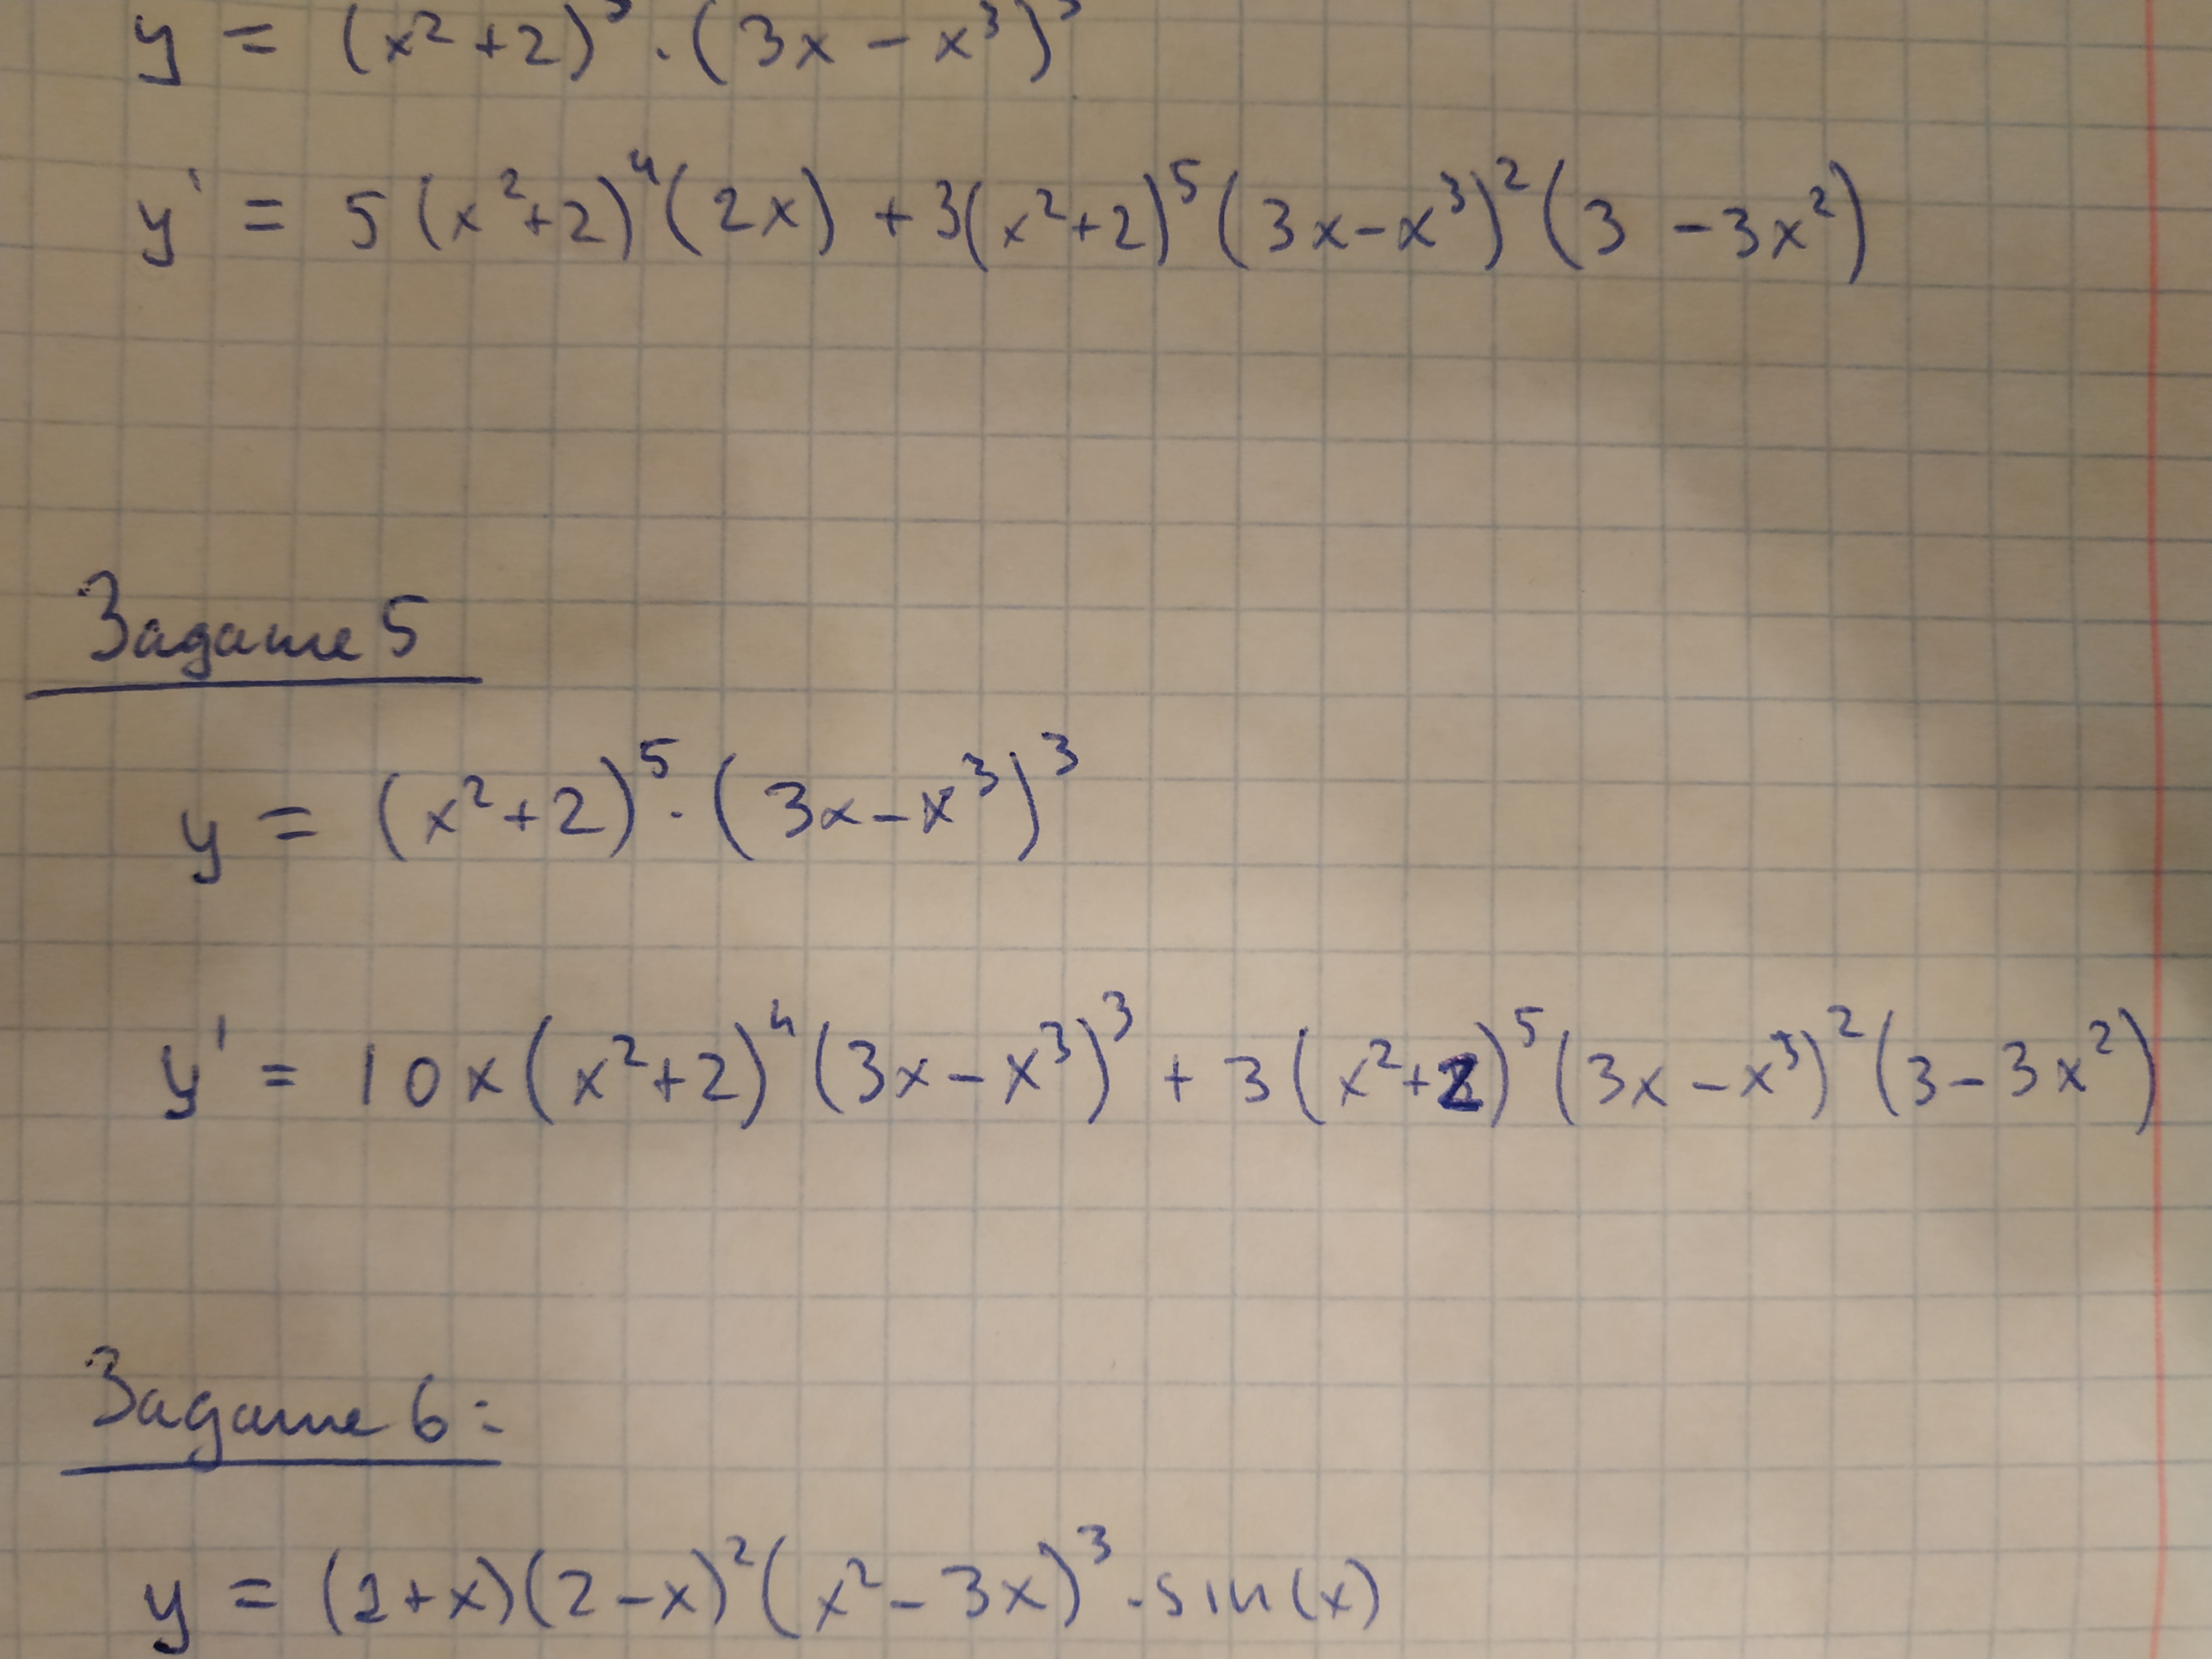 y = (x²+2)⁵·(3x – x³)³
y' = 5(x²+2)⁴(2x) + 3(x²+2)⁵(3x–x³)²(3 –3x²)
Задание 5
y = (x²+2)⁵·(3x–x³)³
y' = 10x(x²+2)⁴(3x–x³)³ + 3(x²+2)⁵(3x–x³)²(3–3x²)
Задание 6:
y = (2+x)(2–x)²(x²–3x)³·sin(x)